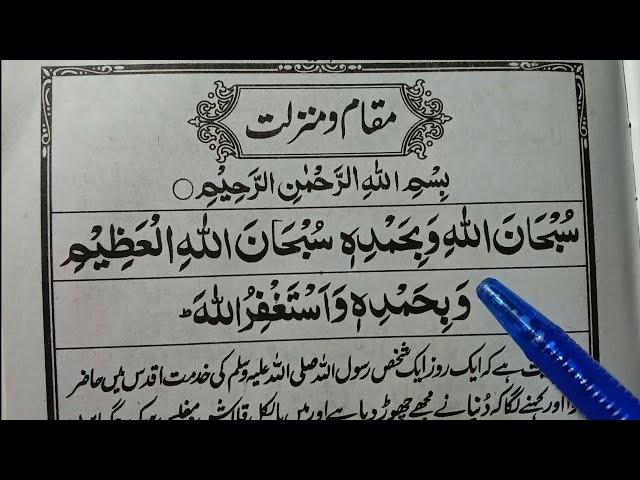 مقام و منزلت
بِسْمِ اللهِ الرَّحْمٰنِ الرَّحِيْمِ
سُبْحَانَ اللهِ وَبِحَمْدِهٖ سُبْحَانَ اللهِ الْعَظِيْمِ
وَبِحَمْدِهٖ وَاَسْتَغْفِرُ اللهَ ط
ہے کہ ایک روز ایک شخص رسول اللہ صلی اللہ علیہ وسلم کی خدمت اقدس میں حاضر
اور کہنے لگا کہ دُنیا نے مجھے چھوڑ دیا ہے اور میں بالکل